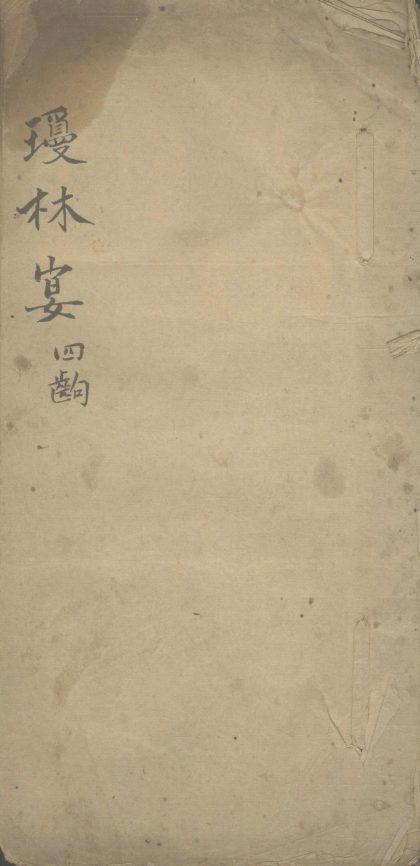 瓊林宴四齣